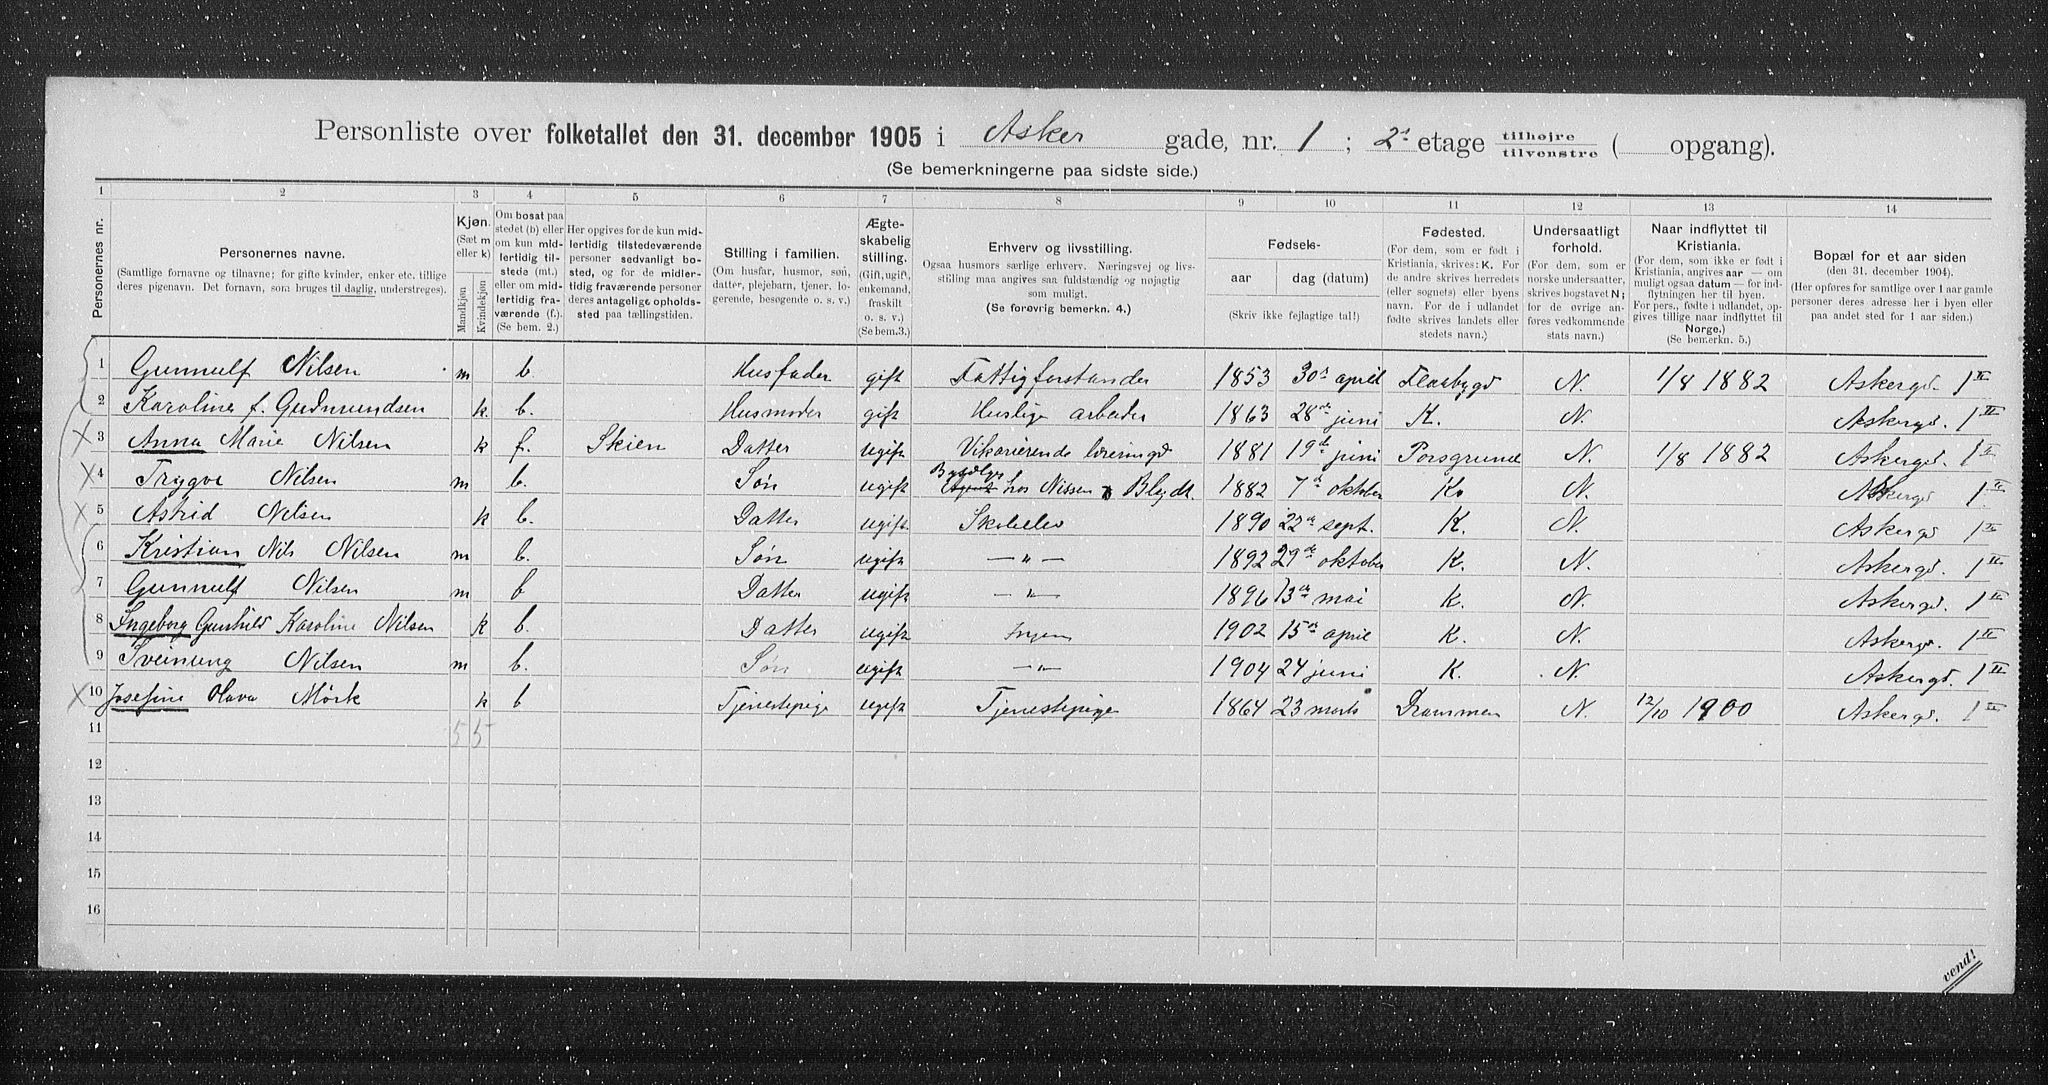 Personliste over folketallet den 31. december 1905 i Asker gade, nr. 1 ; 2den etage tilhøjre / tilvenstre ( opgang).
(Se bemerkningerne paa sidste side.)
1 2 3 4 5 6 7 8 9 10 11 12 13 14
Personernes nr.
Personernes navne.
(Samtlige fornavne og tilnavne; for gifte kvinder, enker etc. tillige
deres pigenavn. Det fornavn, som bruges til daglig, understreges).
Kjøn.
(Sæt m
eller k)
Mandkjøn
Kvindekjøn
Om bosat paa
stedet (b) eller
om kun mid-
lertidig til-
stede (mt.)
eller om mid-
lertidig fra-
værende (f.).
(Se bem. 2.)
Her opgives for de kun mid-
lertidig tilstedeværende
personer sedvanlig bo-
sted, og for de midler-
tidig fraværende personer
deres antagelige opholds-
sted paa tællingstiden.
Stilling i familien.
(Om husfar, husmor, søn,
datter, plejebarn, tjener, lo-
gerende, besøgende o. s. v.)
Ægte-
skabelig
stilling.
(Gift, ugift,
enkemand,
fraskilt
o. s. v.)
(Se bem.3.)
Erhverv og livsstilling.
Ogsaa husmors særlige erhverv. Næringsvej og livs-
stilling maa angives saa fuldstændig og nøjagtig
som muligt.
(Se forøvrig bemerkn. 4.)
Fødsels-
aar dag (datum)
(Skriv ikke fejlagtige tal!)
Fødested.
(For dem, som er født i
Kristiania, skrives: K. For
de andre skrives herredets
(eller sognets) eller byens
navn. For de i udlandet
fødte skrives landets eller
stedets navn.)
Undersaatligt
forhold.
(For dem, som er
norske undersaatter,
skrives bogstavet N;
for de øvrige an-
føres vedkommende
stats navn.)
Naar indflyttet til
Kristiania.
(For dem, som ikke er født i
Kristiania, angives aar — om
muligt ogsaa datum — for ind-
flytningen her til byen.
For pers., fødte i udlandet, op-
gives tillige naar indflyttet til
Norge.)
(Se bemerkn. 5.)
Bopæl for et aar siden
(den 31. december 1904).
(Her opføres for samtlige over 1 aar gamle
personer deres adresse her i byen eller
paa andet sted for 1 aar siden.)
1 Gunnulf Nilsen m b. Husfader gift Fattigforstander 1853 30te april Flaabygd N. 1/8 1882 Askergd. 1 II
2 Karoline f. Gudmundsen k b. Husmoder gift Huslige arbeider 1863 28de juni K. N. Askergd. 1 II
3 Anna Marie Nilsen k f. Skien Datter ugift Vikarierende lærerinde 1881 19de juni Porsgrund N. 1/8 1882 Askergd. 1 II
4 Trygve Nilsen m b. Søn ugift hos Nissen & Blydt 1882 7de oktober K. N. Askergd. 1 II
5 Astrid Nilsen k b. Datter ugift Skoleelev 1890 22de sept. K. N. Askergd 1 II
6 Kristian Nils Nilsen m b. Søn ugift — " — 1892 29de oktober K. N. Askergd. 1 II
7 Gunnulf Nilsen m b Datter ugift — " — 1896 13de mai K. N. Askergd. 1 II
8 Ingeborg Gunhild Karoline Nilsen k b. Datter ugift Ingen 1902 15de april K. N. Askergd. 1 II
9 Sveinung Nilsen m b. Søn ugift — " — 1904 24 juni K. N. Askergd. 1 II
10 Josefine Olava Mörk k b Tjenestepige ugift Tjenestepige 1864 23 marts Drammen N. 12/10 1900 Askergd. 1 II
11 5 5
12
13
14
15
16
vend!